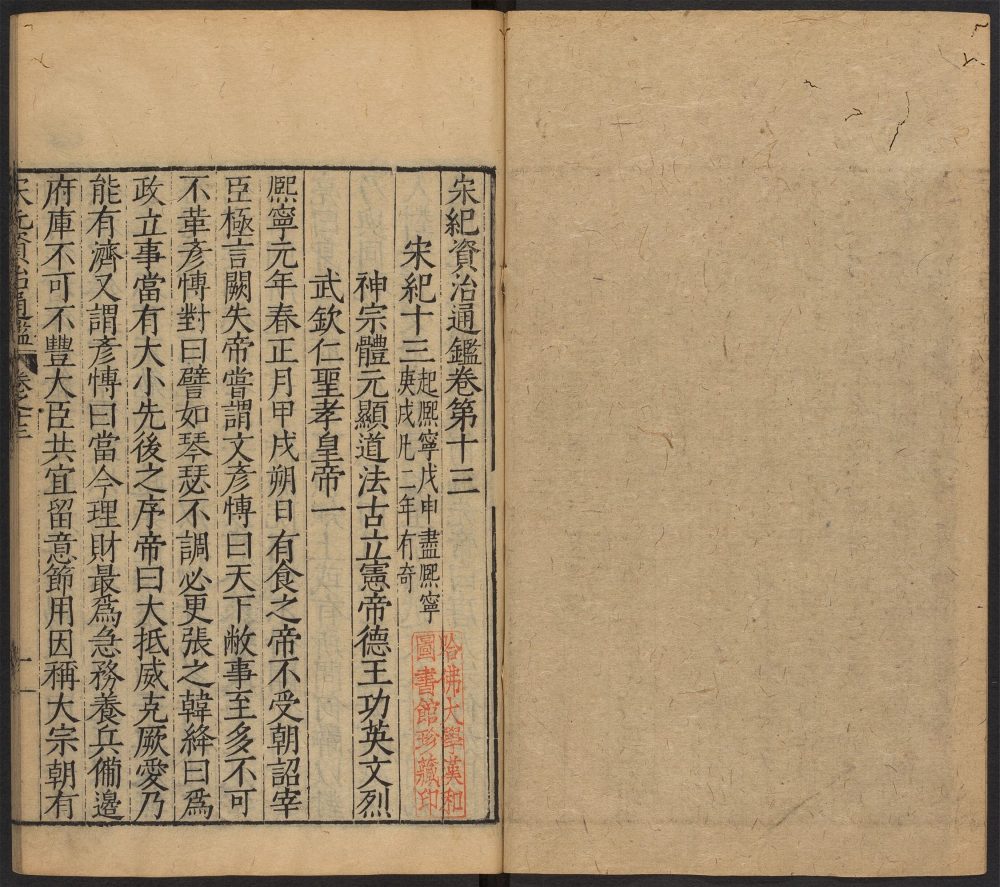 宋紀資治通鑑卷第十三
宋紀十三起熈寧戊申盡熈寧
庚戌凡二年有奇
神宗體元顯道法古立憲帝德王功英文烈
武欽仁聖孝皇帝一
熈寧元年春正月甲戌朔日有食之帝不受朝詔宰
臣極言闕失帝嘗謂文彥愽曰天下敝事至多不可
不革彥愽對曰譬如琴瑟不調必更張之韓絳曰爲
政立事當有大小先後之序帝曰大抵威克厥愛乃
能有濟又謂彥愽曰當今理財最爲急務養兵僃邊
府庫不可不豐大臣共宜留意節用因稱大宗朝有
宋元資治通鑑 卷之十三 一
哈佛大學漢和
圖書館珍藏印